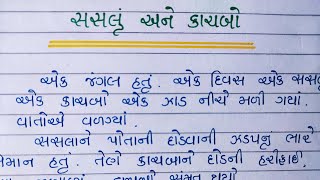 સસલું અને કાચબો
એક જંગલ હતું. એક દિવસ એક સસલ
એક કાચબો એક ઝાડ નીચે મળી ગયાં.
વાતોએ વળગ્યાં.
સસલાને પોતાની દોડવાની ઝડપનું ભારે
માન હતું. તેણે કાચબાને દોડની હરીફાઈ